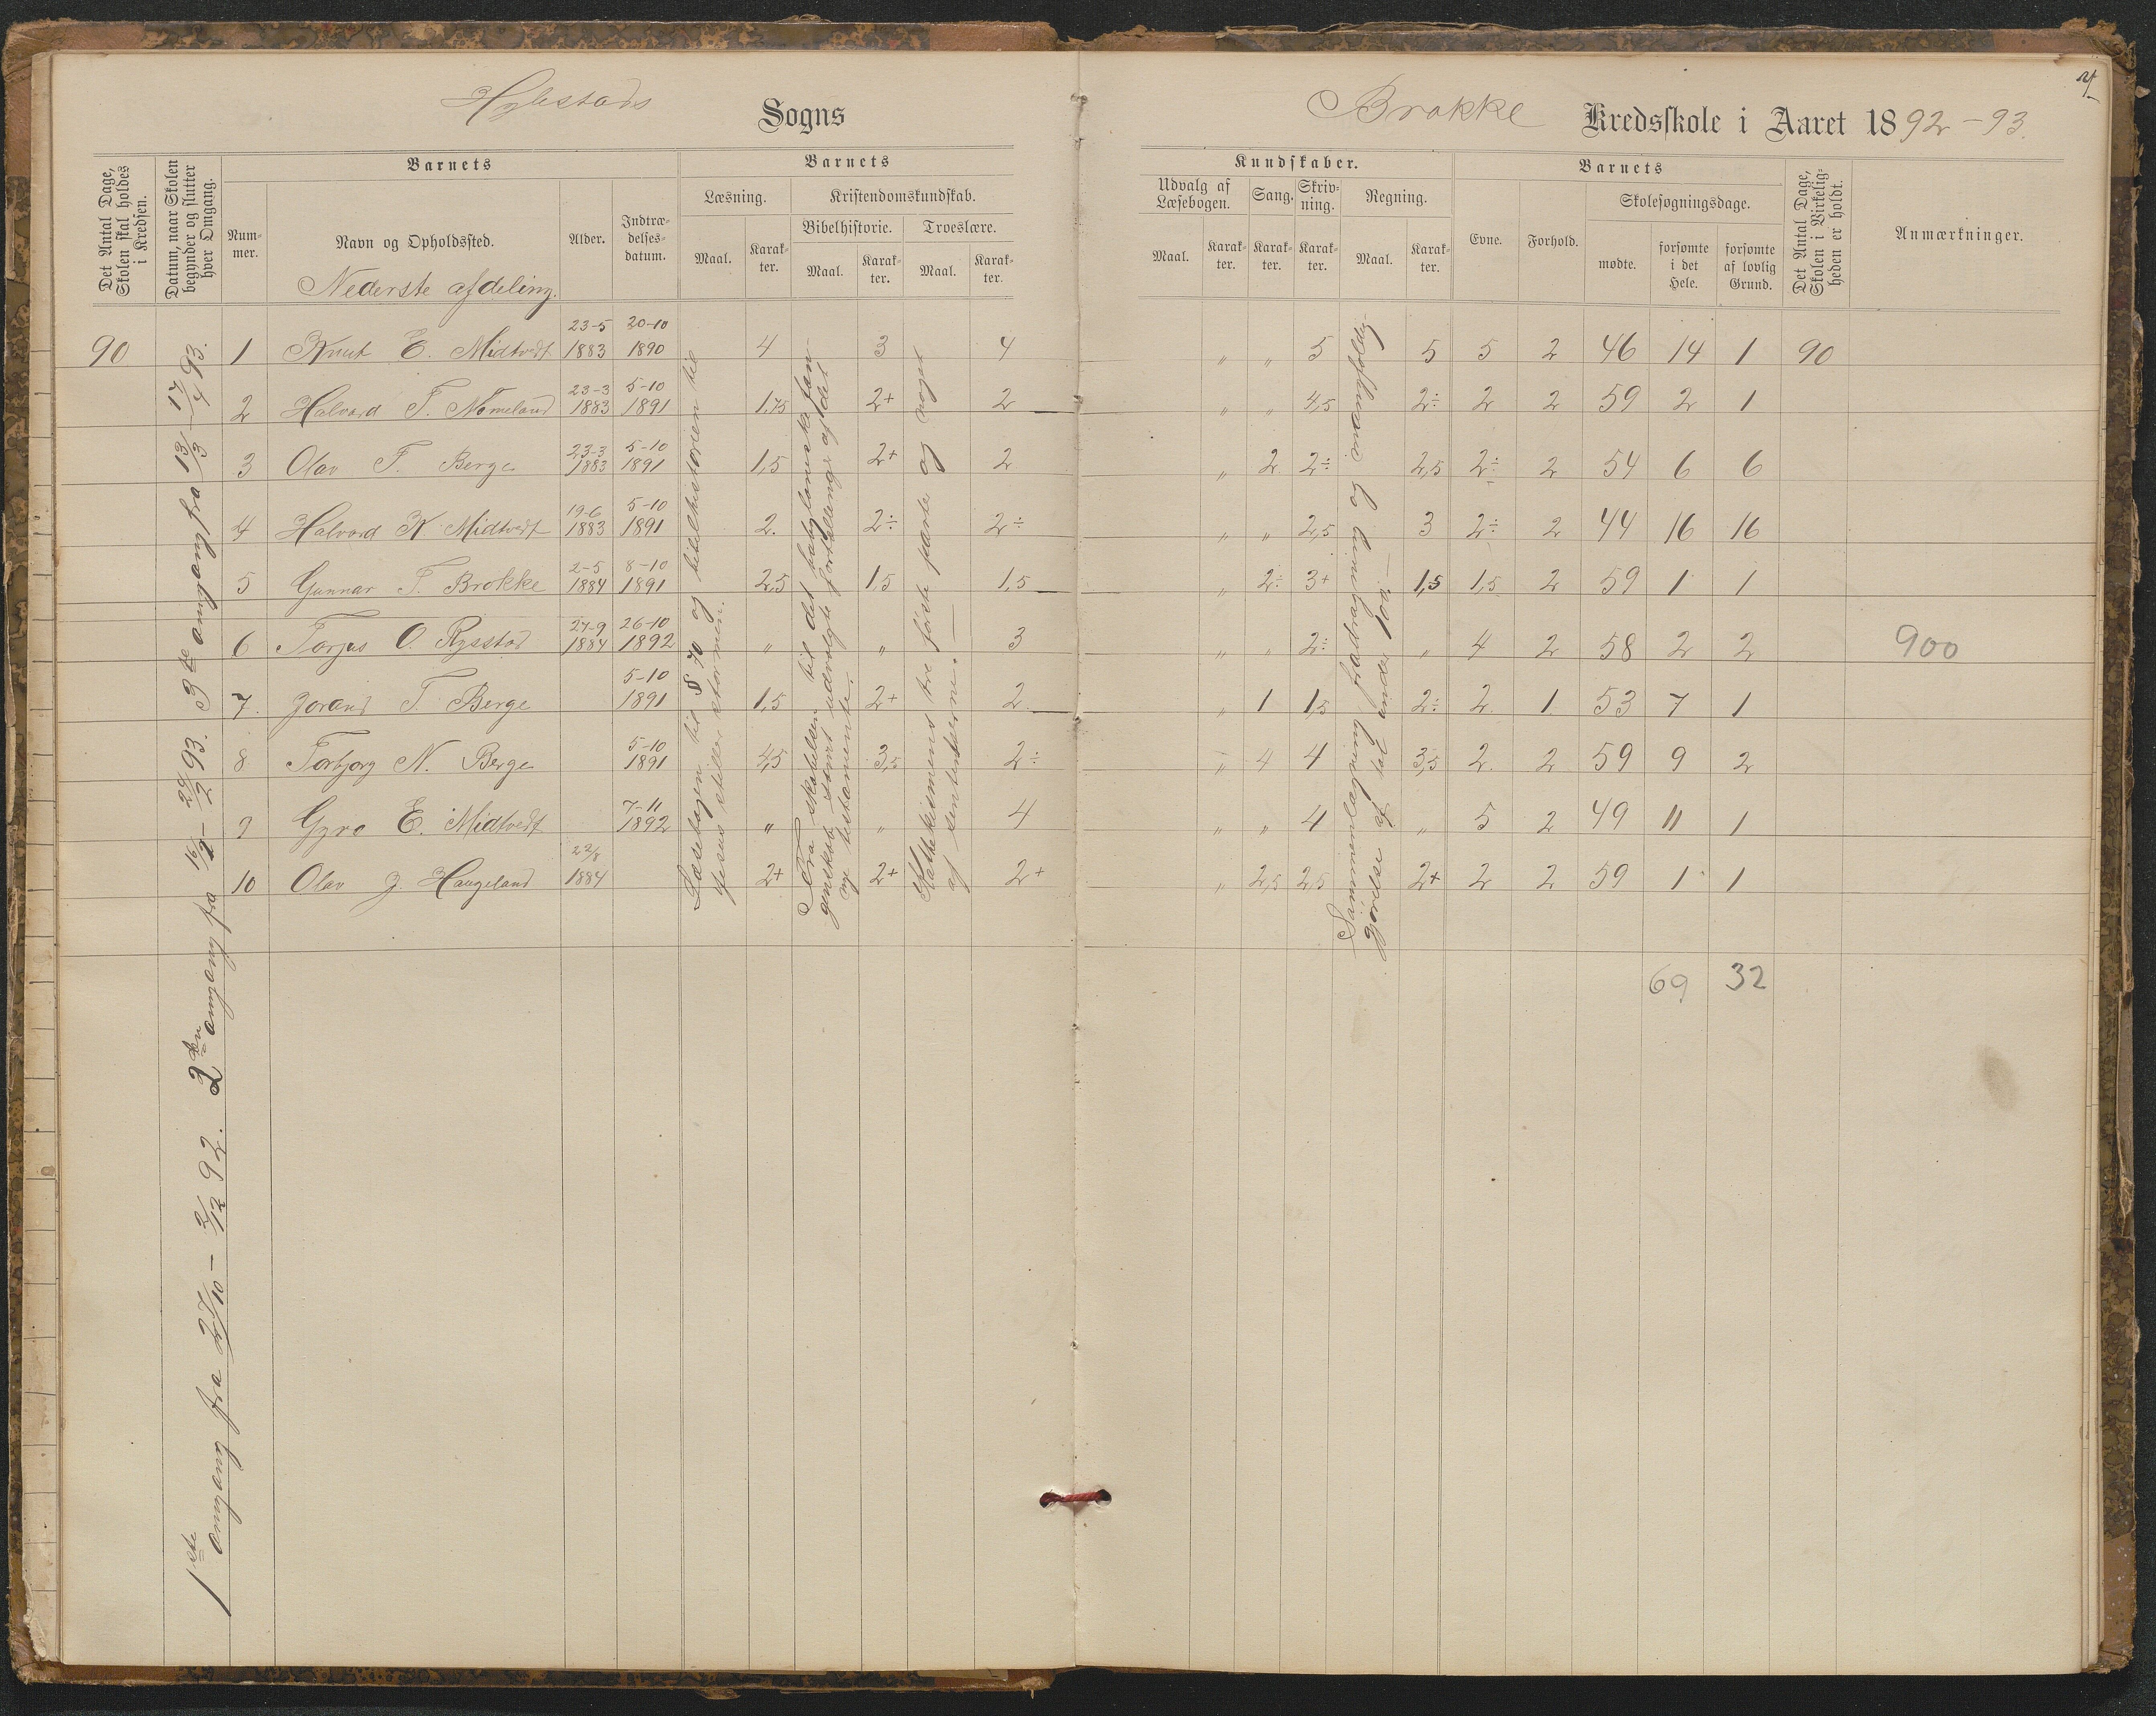 Hylestads Sogns
Brokke Kredsskole i Aaret 1892-93.
Det Antal Dage, Skolen skal holdes i Kredsen.
Datum, naar Skolen begynder og slutter hver Omgang.
Barnets
Nummer.
Navn og Opholdssted.
Alder.
Indtrædelsesdatum.
Barnets
Læsning.
Maal.
Karakter.
Kristendomskundskab.
Bibelhistorie.
Maal.
Karakter.
Troeslære.
Maal.
Karakter.
Kundskaber.
Udvalg af Læsebogen.
Maal.
Karakter.
Sang.
Karakter.
Skrivning.
Karakter.
Regning.
Maal.
Karakter.
Barnets
Evne.
Forhold.
Skolesøgningsdage.
mødte.
forsømte i det Hele.
forsømte af lovlig Grund.
Det Antal Dage, Skolen i Virkeligheden er holdt.
Anmærkninger.
Nederste afdeling.
90 1 Knut E. Midtvedt 23-5 1883 20-10 1890 4 3 4 " " 5 5 5 2 46 14 1 90
2 Halvord T. Nomeland 23-3 1883 5-10 1891 1,75 2+ 2 " " 4,5 2÷ 2 2 59 2 1
3 Olav T. Berge 23-3 1883 5-10 1891 1,5 2+ 2 " 2 2÷ 2,5 2÷ 2 54 6 6
4 Halvord K. Midtvedt 19-6 1883 5-10 1891 2. 2÷ 2÷ " " 2,5 3 2÷ 2 44 16 16
5 Gunnar T. Brokke 2-5 1884 8-10 1891 2,5 1,5 1,5 " 2÷ 3+ 1,5 1,5 2 59 1 1
6 Torjus O. Rysstad 27-9 1884 26-10 1892 " " 3 " " 2÷ " 4 2 58 2 2 900
7. Jorand T. Berge 5-10 1891 1,5 2+ 2 " 1 1,5 2÷ 2 1 53 7 1
8 Torbjorg N. Berge 5-10 1891 4,5 3,5 2÷ " 4 4 3,5 2 2 59 9 2
9 Gyro E. Midtvedt 7-11 1892 " " 4 " " 4 " 5 2 49 11 1
10 Olav J. Haugeland 22/8 1884 2+ 2+ 2+ " 2,5 2,5 2+ 2 2 59 1 1
69 32
1ste omgang fra 27/10 - 2/12 92. 2den omgang fra 16/1 - 24/2 93. 3de omgang fra 13/3 - 17/4 93.
Læsebogen til § 70 og bibelhistorien til
Jesus stiller stormen.
Fra skabelsen til det babyloniske fan-
genskab samt udvalgte fortellinger af det
nye testamente.
Kathekismens tre første parter og noget
af sentenserne.
Sammenlægning fradragning og mangfoldig-
gjørelse af tal under 100.